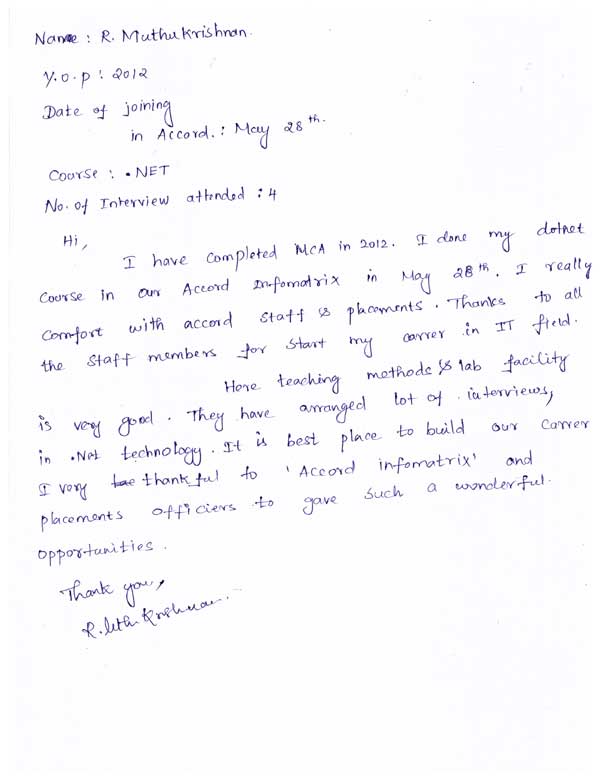 Name : R. Muthukrishnan.
Y.O.P : 2012
Date of joining
in Accord. : May 28th.
Course : .NET
No. of Interview attended : 4
Hi,
I have completed MCA in 2012. I done my dotnet
Course in our Accord Infomatrix in May 28th. I really
Comfort with accord staff & placements. Thanks to all
the staff members for start my carrer in IT field.
Here teaching methods & lab facility
is very good. They have arranged lot of interviews,
in .Net technology. It is best place to build our Carrer
I very thankful to 'Accord infomatrix' and
placements officiers to gave such a wonderful.
opportunities.
Thank you,